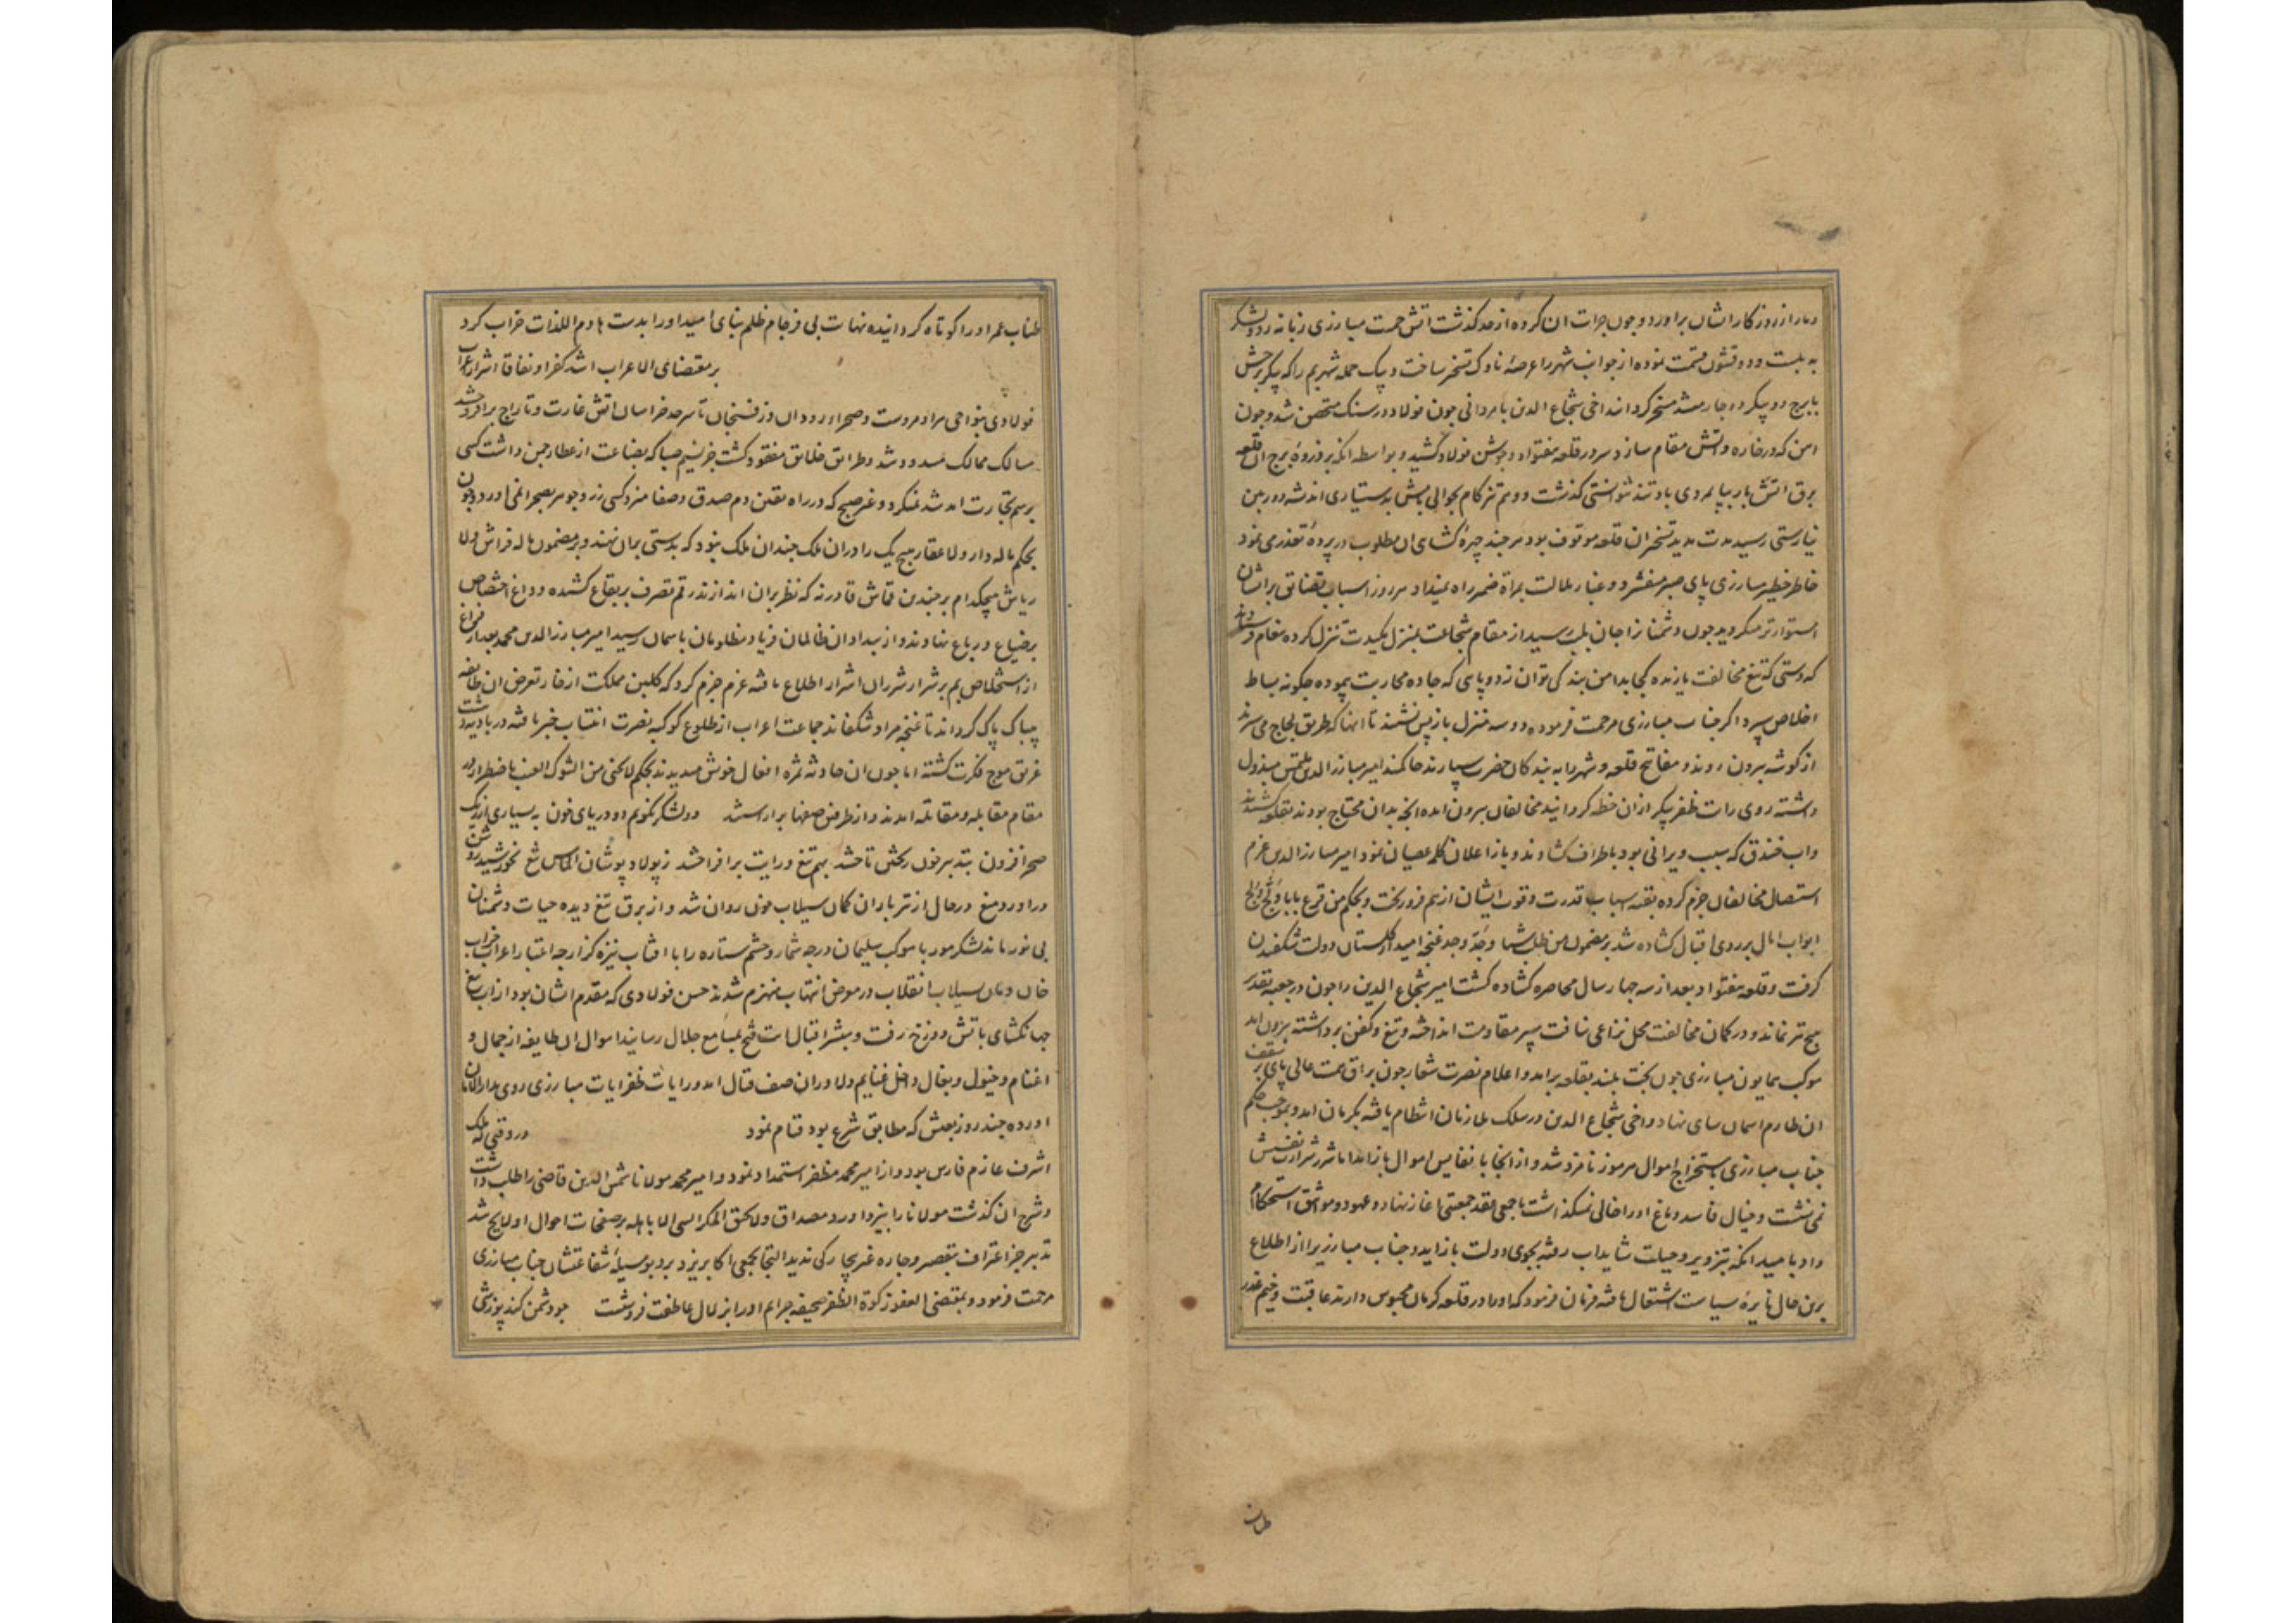 دمار از روزکار اشان براورد و جون جرات ان کروه از حد کذشت اتش حمیت مبارزی زبانه زد و لشکر
به بیست و دو قشون قسمت نموده از جوانب شهر را عرصهٔ ناوک تسخیر ساخت و بیک حمله شهر بم را که پیکر برجش
با برج دو پیکر دو جار مسخر کردانید اخی شجاع الدین با مردانی جون فولاد در سنک متحصن شد و جون
اهن که در خاره و اتش مقام سازد سر در قلعه کشید و بواسطه انکه بر ذروهٔ برج ان قلعه
برق اتش بار بپایمردی باد تند نتوانستی کذشت و وهم تیز کام بحوالی بامش بدستیاری اندیشه دوربین
نیارستی رسید مدت مدید تسخیر ان قلعه موقوف بود هر جند جهرهٔ کشای ان مطلوب در پردهٔ تعذر می نمود
خاطر خطیر مبارزی پای صبر می فشرد و غبار ملالت بمراة ضمیر راه نمیداد هر روز اسباب تضایق بر اشان
استوارتر میکردید جون دشمنان را جان بلب رسید از مقام شجاعت بمنزل مکیدت تنزل کرده
که دستی که تیغ مخالفت یازنده کجا بدامن بندکی توان زد و پایی که جاده محاربت پیموده جکونه بساط
اخلاص سپرد اکر جناب مبارزی مرحمت فرموده دو سه منزل باز پس نشیند تا انها که طریق لجاج می سپرند
از کوشه بیرون روند و مفاتیح قلعه و شهر را به بندکان حضرت سپارند حاکمند امیر مبارز الدین ملتمس مبذول
داشته روی رایت ظفر پیکر از ان خطه کردانید مخالفان بیرون امده انچه بدان محتاج بودند بقلعه کشیدند
واب خندق که سبب ویرانی بود باطراف کشاوند و باز اعلان کلمه عصیان نمود امیر مبارز الدین عزم
استیصال مخالفان جزم کرده بقیه اسباب قدرت و قوت ایشان از هم فرو ریخت و بحکم من قرع بابا و لج ولج
ابواب امال بر روی اقبال کشاده شد بر مضمون من طلب شیا وجد وجد غنجه امید از کلستان دولت شکفیدن
کرفت و قلعه بعد از سه جهار سال محاصره کشاده کشت امیر شجاع الدین را جون در جعبه تقدیر
هیچ تیر نماند و در کمان مخالفت محل نزاعی نیافت سپر مقاومت انداخته و تیغ و کفن برداشته بیرون امد
موکب همایون مبارزی جون بخت بلند بقلعه برامد و اعلام نصرت شعار جون براق همت عالی پای بر سقف
ان طارم اسمان سای نهاد و اخی شجاع الدین در سلک ملازمان انتظام یافته بکرمان امد و بموجب حکم
جناب مبارزی باستخراج اموال هرموز نامزد شد و از انجا با نفایس اموال باز امد اما شرر شرارت نفسش
نمی نشست و خیال فاسد دماغ او را خالی نمیکذاشت با جمعی عقد جمعیتی اغاز نهاد و عهود و مواثیق استحکام
داد بامید انکه بتزویر و حیلت شاید اب رفته بجوی دولت باز اید و جناب مبارزی را از اطلاع
برین حال نایره سیاست اشتعال یافته فرمان فرمود که او را در قلعه کرمان محبوس دارند عاقبت وخیم غدر
طناب
طناب عمر او را کوتاه کردانیده نهایت بی فرجام ظلم بنای امید او را بدست هادم اللذات خراب کرد
بر مقتضای الاعراب اشد کفرا و نفاقا اشرار اعراب
فولادی بنواحی هراة و مروست و صحرا رودان و رفسنجان تا سرحد خراسان اتش غارت و تاراج برافروختند
مسالک ممالک مسدود شد و طرایق خلایق مفقود کشت جز نسیم صبا که بضاعت از عطار جمن داشت کسی
برسم تجارت امد شد نمیکرد و غیر صبح که در راه یقین دم صدق و صفا میزد کسی زر و جوهر بصحرا نمی اورد و جون
بحکم ماله دار ولا عقار هیچ یک را در ان ملک جندان ملک نبود که بدستی بران نهند و بر مضمون ماله فراش ولا
ریاش هیچکدام بر جندین قماش قادر نه که نظر بران اندازند رقم تصرف بر بقاع کشیده و داغ اختصاص
بر ضیاع و رباع نهادند و از بیداد ان ظالمان فریاد مظلومان باسمان رسید امیر مبارز الدین محمد بعد از فراغ
از استخلاص بم بر شرار شر ان اشرار اطلاع یافته عزم جزم کرد که کلبن مملکت از خار تعرض ان طایفه
بی باک پاک کرداند تا غنجه مراد شکفاند جماعت اعراب از طلوع کوکبه نصرت انتساب خبر یافته در بادیه دهشت
غریق موج فکرت کشته اما جون ان حادثه ثمره افعال خویش میدیدند بحکم لا تجنی من الشوک العنب باضطرار در
مقام مقابله و مقاتله امدند و از طرفین صفها براراستند دو لشکر نکویم دو دریای خون به بسیاری از ریک
صحرا فزون بتدبیر خون ریختن تاختند بهم تیغ و رایت برافراختند ز پولاد پوشان الماس تیغ بخورشید روشن
دراورد میغ در حال از تیر باران کمان سیلاب خون روان شد و از برق تیغ دیده حیات دشمنان
بی نور ماند لشکر مور با موکب سلیمان در جه شمار و جشم ستاره را با افتاب نیزه کزار جه اعتبار اعراب خراب
خان و مان سیلاب انقلاب در معرض انتهاب منهزم شدند حسن فولادی که مقدم اشان بود از اب تیغ
جهانکشای باتش دوزخ رفت و مبشر اقبال ایت فتح بمسامع جلال رسانید اموال ان طایفه از جمال و
اغنام و خیول و بغال داخل غنایم دلاوران صف قتال امد و رایات ظفر ایات مبارزی روی بدار الامان
اورده جند روز بعیش که مطابق شرع بود قیام نمود در وقتی که ملک
اشرف عازم فارس بود و از امیر محمد مظفر استمداد نمود و امیر محمد مولانا شمس الدین قاضی را طلب داشت
و شرح ان کذشت مولانا را بیزد اورد و مصداق ولا یحیق المکر السیی الا باهله بر صفحات احوال او لایح شد
تدبیر جز اعتراف بتقصیر و جاره غیر بیچارکی ندید التجا بجمعی اکابر یزد برد و بوسیله شفاعتشان جناب مبارزی
مرحمت فرمود و بمقتضی العفو زکوة الظفر صحیفه جرایم او را بزلال عاطفت فروشست جو دشمن کند پوزشی